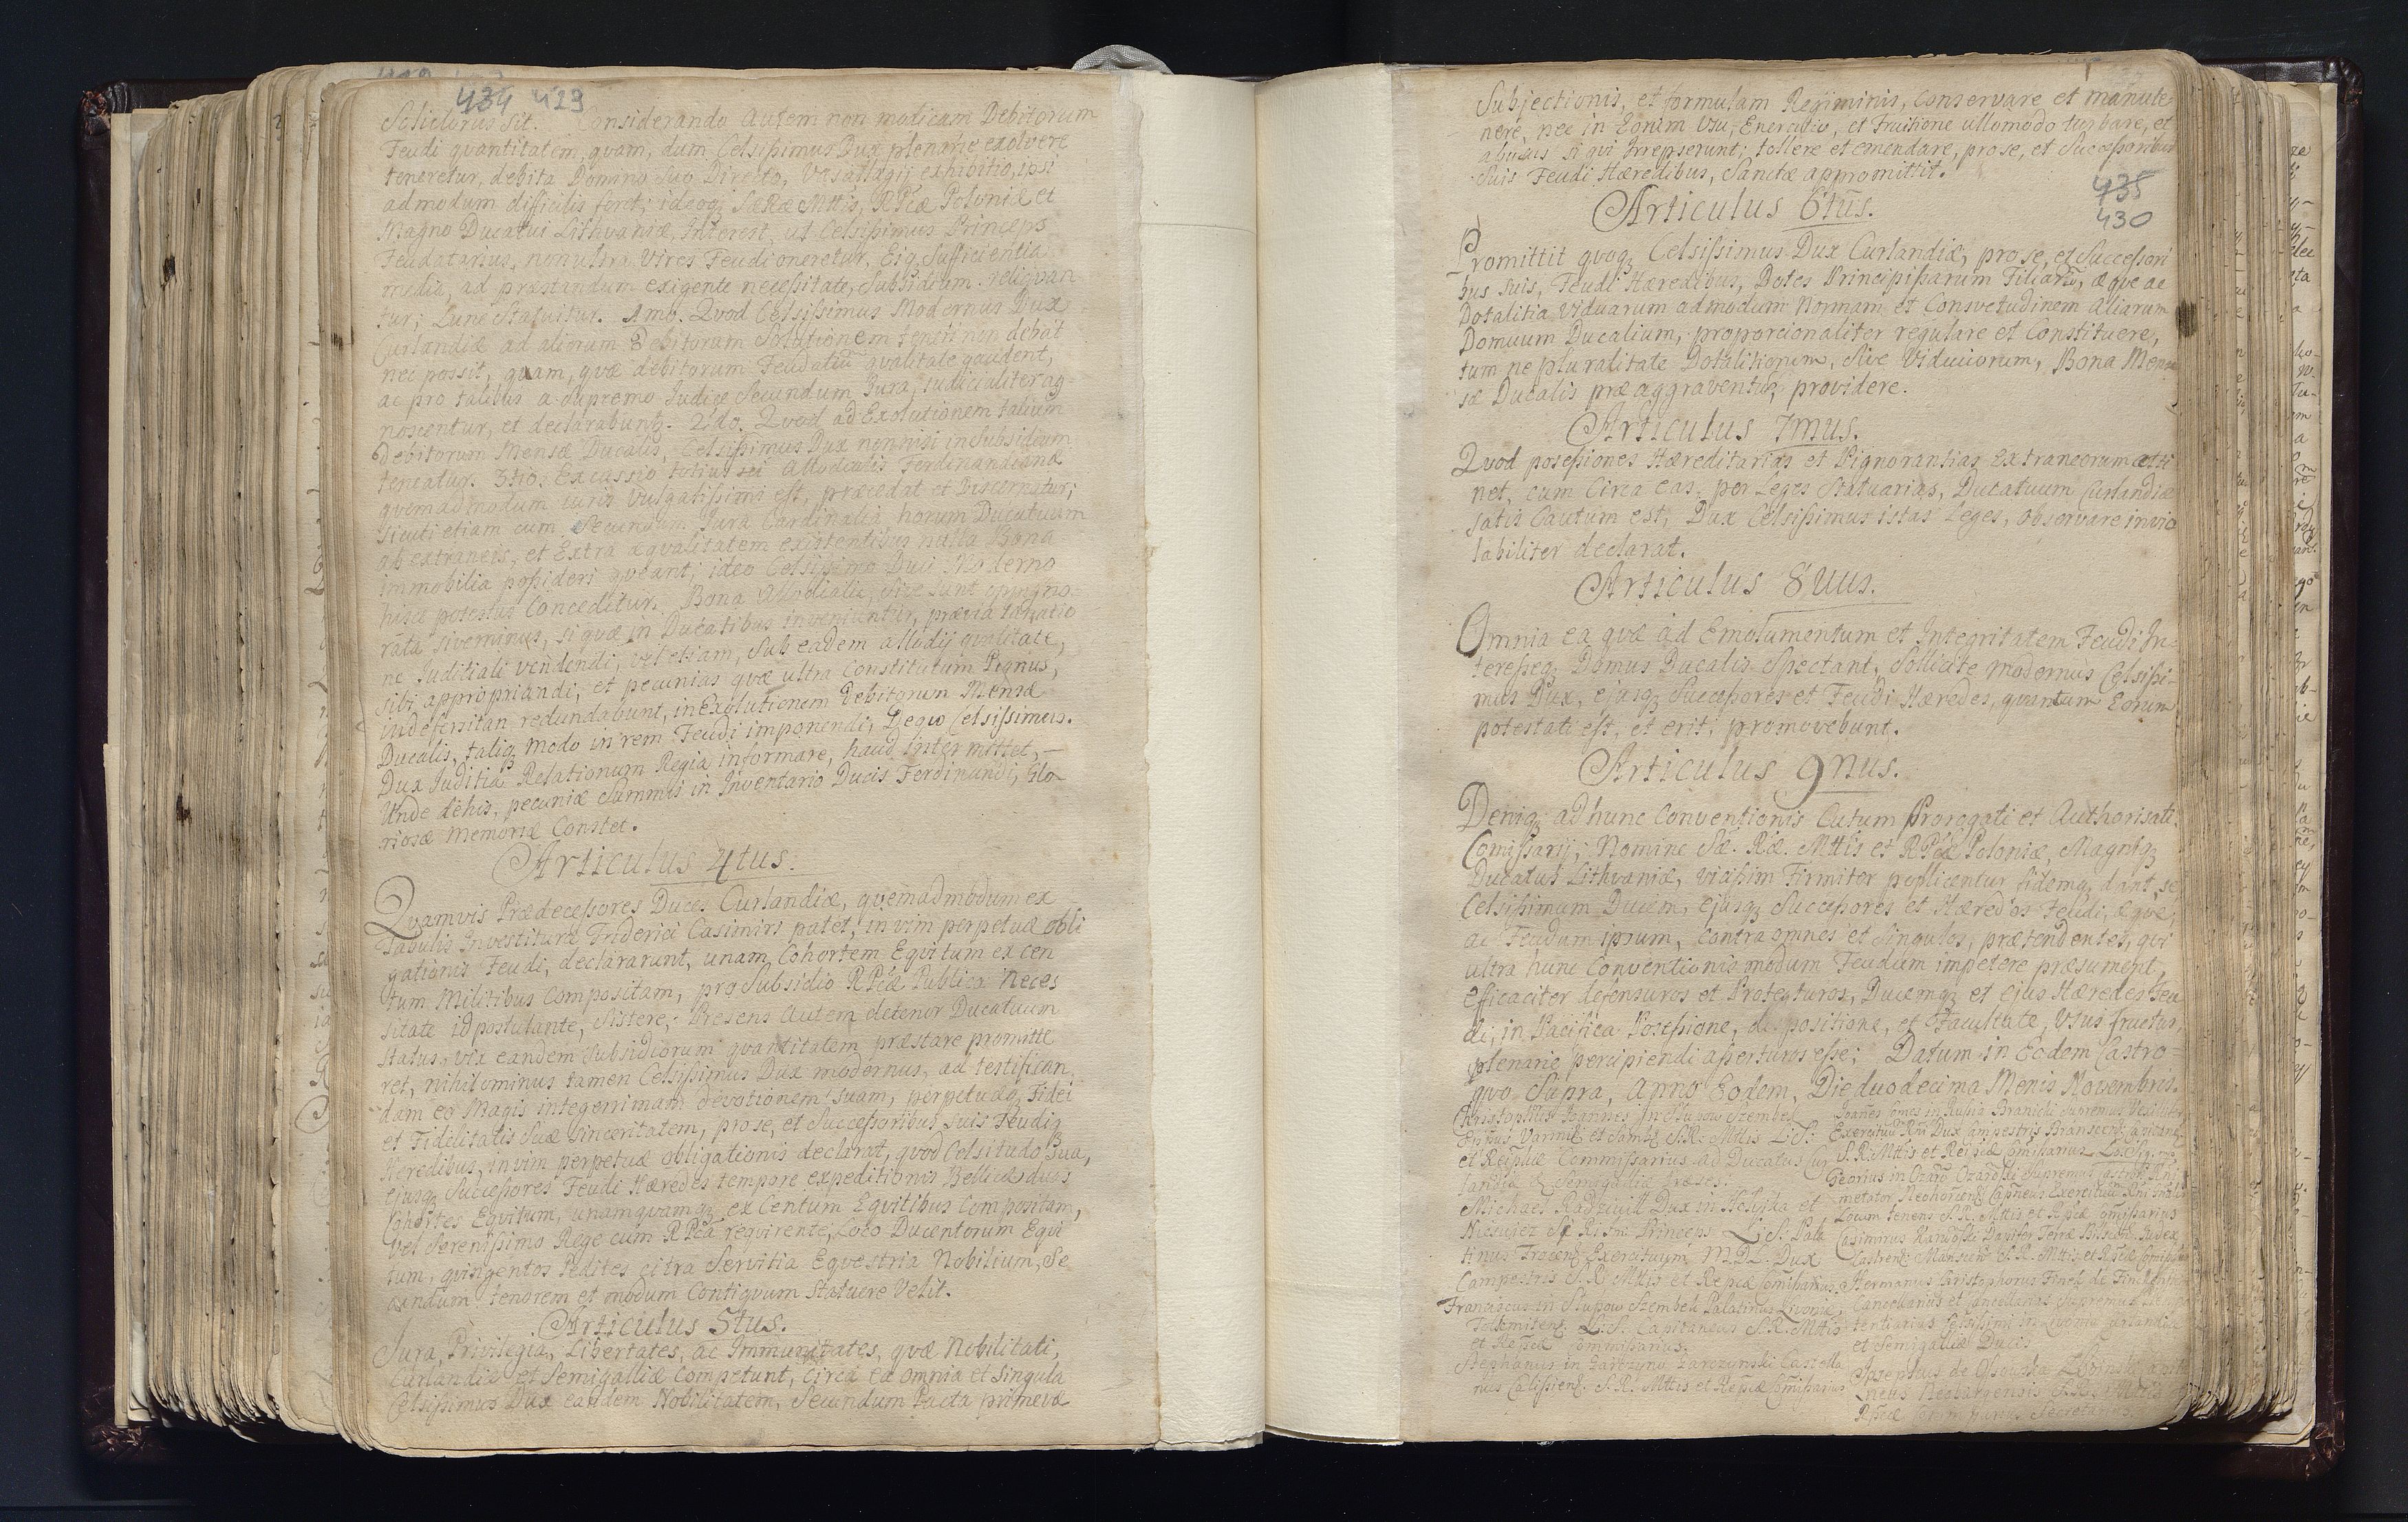 434 423
Solidorus sit. Considerando Autem non modicam Debitorum
Feudi quantitatem, quam, dum Celsissimus Dux plenarie exolvere
teneretur, debita Domino suo Directo, Vasallagij exhibitio, ipsi
admodum difficilis foret; ideoq; SæRæ Mttis, RPcæ Poloniæ et
Magno Ducatui Lithvaniæ, Interest, ut Celsissimus Princeps
Feudatarius, non ultra Vires Feudi oneretur, Eiq Sufficientia
media, ad præstandum exigente necessitate, Subsidium relinquan
tur; Tunc Statuitur. 1mo. Quod Celsissimus Modernus Dux
Curlandiæ ad aliorum Debitorum Solutionem teneri non debeat
nec possit, quam, quæ debitorum Feudaliũ qualitate gaudent,
ac pro talibus a supremo Judice Secundum Jura, judicialiter ag
noscentur, et declarabuntr. 2do. Quod ad Exolutionem talium
Debitorum Mensæ Ducalis, Celsissimus Dux nonnisi in Subsidium
teneatur. 3tio. Excussio totius rei Allodialis Ferdinandianæ
quemadmodum iuris Vulgatissimi est, præcedat et Discernatur;
sicuti etiam cum Secundum Jura Cardinalia, horum Ducatuum
ab extraneis, et Extra æqualitatem existentibus nulla Bona
immobilia possideri queant; ideo Celsissimo Duci Moderno
hisce potestas Conceditur. Bona Allodialia, sive sunt oppigno-
rata sive minus, si quæ in Ducatibus inveniuntur, prævia taxatio
ne Juditiali vendendi, vel etiam, Sub eadem allodij qualitate,
sibi appropriandi, et pecunias quæ ultra Constitutum Pignus,
inde forsitan redundabunt, in Exolutionem Debitorum Mensæ
Ducalis, taliq modo in rem Feudi imponendi, Celsissimus
Dux Juditia Relationum Regia informare, haud intermittet,
Unde dehis, pecuniæ Summis in Inventario Ducis Ferdinandi, Glo
riosæ Memoriæ Constet.
Articulus 4tus.
Quamvis Prædecessores Duces Curlandiæ, quemadmodum ex
Tabulis Investituræ Friderici Casimiri patet, in vim perpetuæ obli
gationis Feudi, declararunt, unam Cohortem Equitum ex cen
tum Militibus Compositam, pro Subsidio RPcæ Publica Neces
sitate id postulante, Sistere; Presens Autem detenor Ducatuum
status, vix eandem Subsidiorum quantitatem præstare promitte
ret, nihilominus tamen Celsissimus Dux modernus, ad testifican
dam eo Magis integerrimam devotionem Suam, perpetuæq Fidei
et Fidelitatis Suæ Sinceritatem, pro se, et Successoribus Suis Feudiq
Hæredibus, in vim perpetuæ obligationis declarat, quod Celsitudo Sua,
ejusq Successores Feudi Hæredes tempore expeditionis Bellicæ duas
Cohortes Equitum, unamquamq ex Centum Equitibus Compositam,
Vel Serenissimo Rege cum RPca requirente, Loco Ducentorum Equi
tum, quingentos Pedites citra Servitia Equestria Nobilium, Se
cundum tenorem et modum Contiguum Statuere Velit.
Articulus 5tus.
Jura, Privilegia, Libertates, ac Immunitates, quæ Nobilitati,
Curlandiæ et Semigalliæ Competunt, Circa ea omnia et Singula
Celsissimus Dux eandem Nobilitatem, Secundum Pacta primeva
Subjectionis, et formulam Regiminis, Conservare et manute
nere, nec in Eorum Usu, Exercitio, et Fruitione ullomodo turbare, et
abusus si qui Irrepserunt; tollere et emendare, pro se, et Successoribus
Suis Feudi Hæredibus, Sancte appromittit.
435
430
Articulus 6tus.
Promittit quoq; Celsissimus Dux Curlandiæ, pro se, et Successori
bus suis, Feudi Hæredibus, Dotes Principissarum Filiarũ, æque ac
Dotalitia Viduarum admodum Normam et Consvetudinem Aliarum
Domuum Ducalium, proporcionaliter regulare et Constituere,
tum ne pluralitate Dotalitiorum, Sive Viduiorum, Bona Men
sæ Ducalis præaggraventur, providere.
Articulus 7mus.
Quod possessiones Hæreditarias et Pignorantias Extraneorum atti
net, cum Circa eas, per Leges Statuarias, Ducatuum Curlandiæ
satis Cautum est, Dux Celsissimus istas Leges, Observare invio
labiliter declarat.
Articulus 8vus.
Omnia ea quæ ad Emolumentum et Integritatem Feudi In-
teresseq; Domus Ducalis Spectant, Sollicite modernus Celsissi-
mus Dux, ejusq; Successores et Feudi Hæredes, quantum Eorum
potestati est, et erit, promovebunt.
Articulus 9nus.
Deniq; ad hunc Conventionis Actum Prorogati et Authorisati
Comissarij, Nomine Sæ. Ræ. Mttis et RPcæ Poloniæ, Magniq;
Ducatus Lithvaniæ, vicissim Firmiter pollicentur fidemq; dant, se
Celsissimum Ducem, ejusq; Successores et Hæredes Feudi, æque,
ac Feudum ipsum, Contra omnes et Singulos, prætendentes, qui
ultra hunc Conventionis modum Feudum impetere præsument,
efficaciter defensuros et Protecturos, Ducemq; et ejus Hæredes Feu
di, in Pacifica Possessione, dispositione, et Facultate, Usus fructus,
plenarie percipiendi asserturos esse; Datum in Eodem Castro
quo Supra, Anno Eodem, Die duodecima Menis Novembris.
Christophorus Joannes in Słupow Szembek
Eppus Varmiẽ et Sambẽ S.R. Mttis L.S.
et Reipcæ Commissarius ad Ducatus Cur
landiæ & Semigaliæ Præses.
Michael Radziwiłł Dux in Ołyka et
Nieswiez S. R. Im. Princeps L.S. Pala
tinus Trocens Exercituum M.D.L. Dux
Campestris S.R. Mttis et Reipcæ Comissarius
Franciscus in Słupow Szembek Palatinus Livoniæ
Tolkmitens L.S. Capitaneus S.R. Mttis
et Reipcæ Commissarius.
Stephanus in Garczyn Garczynski Castella
nus Calissiens. S.R. Mttis et Reipcæ Comissarius
Joannes Comes in Ruscia Branicki
Exercituũ Rni Dux Campestris Bransens Capitane
S.R. Mttis et Reipcæ Comissarius Lo. Sig.
Georius in Ozarow Ozarowski Supremus Castror. Rni
metator Capneus Exercituũ Rni
Locum tenens S.R. Mttis et Reipcæ Comissarius
Casimirus Karwoski Dapifer Terræ Bilscens. Judex
Castrens S.R. Mttis et Reipcæ Comissarius
Hermanus Christophorus Finck de Finckenstein
Cancellarius et Supremus
Celsissimi in Livonia Curlandiæ
et Semigalliæ Ducis
Josephus de
neus
Reipcæ Secretarius.